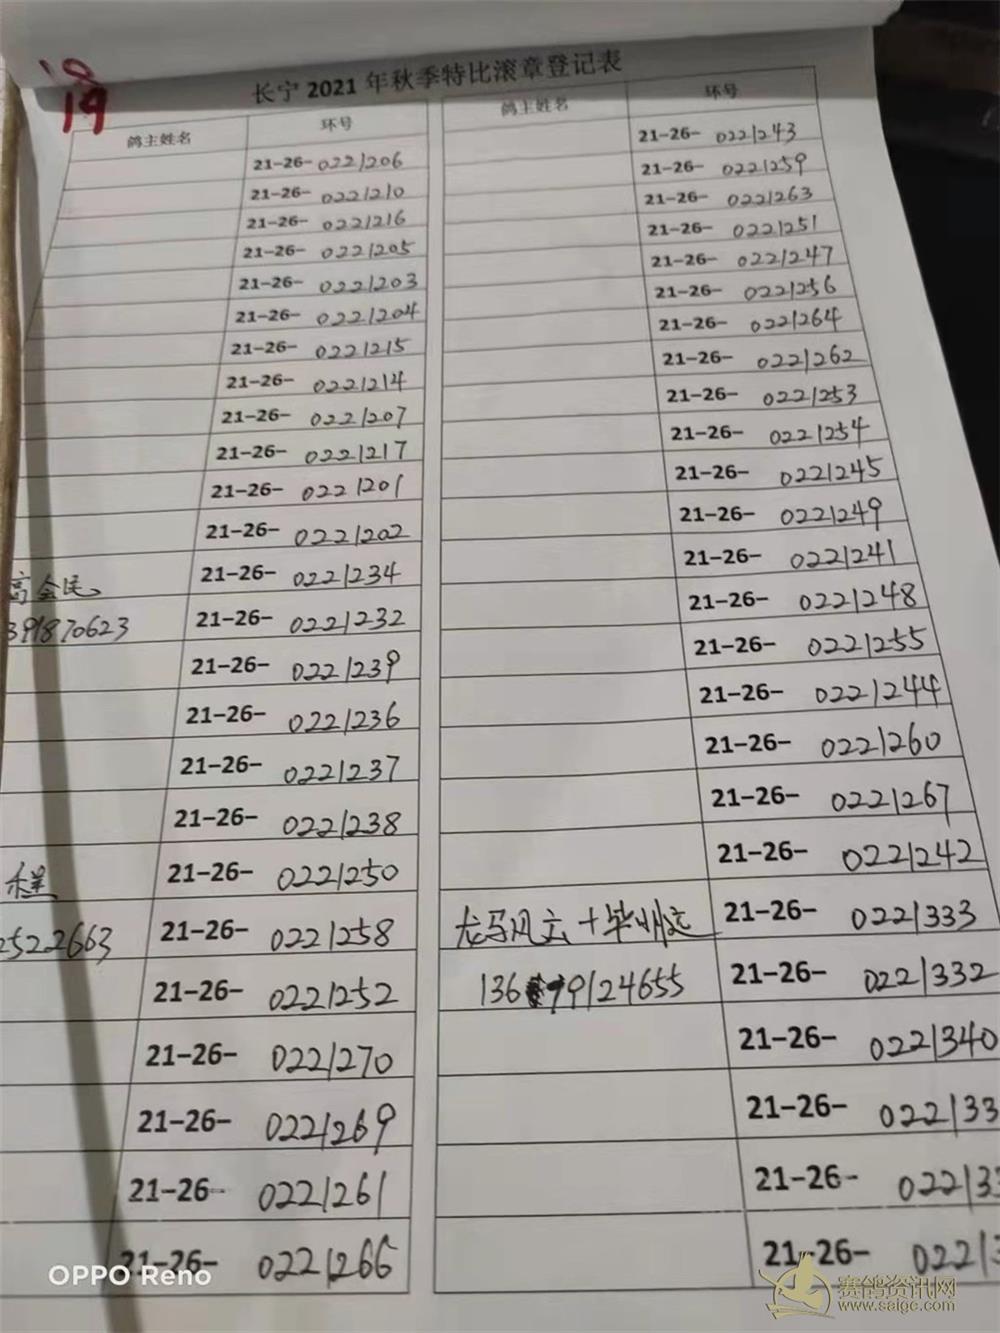 19
长宁 2021 年秋季特比滚章登记表
鸽主姓名 环号
21-26- 0221206
21-26- 0221210
21-26- 0221216
21-26- 0221205
21-26- 0221203
21-26- 0221204
21-26- 0221215
21-26- 0221214
21-26- 0221207
21-26- 0221217
21-26- 0221201
21-26- 0221202
高会民 21-26- 0221234
391870623 21-26- 0221232
21-26- 0221239
21-26- 0221236
21-26- 0221237
21-26- 0221238
21-26- 0221250
2522663 21-26- 0221258
21-26- 0221252
21-26- 0221270
21-26- 0221269
21-26- 0221261
21-26- 0221266
鸽主姓名 环号
21-26- 0221243
21-26- 0221259
21-26- 0221263
21-26- 0221251
21-26- 0221247
21-26- 0221256
21-26- 0221264
21-26- 0221262
21-26- 0221253
21-26- 0221254
21-26- 0221245
21-26- 0221249
21-26- 0221241
21-26- 0221248
21-26- 0221255
21-26- 0221244
21-26- 0221260
21-26- 0221267
21-26- 0221242
龙马风云+毕州远 21-26- 0221333
136 99124655 21-26- 0221332
21-26- 0221340
21-26- 022133
21-26- 022133
21-26- 02213
OPPO Reno
赛鸽资讯网
www.saigc.com